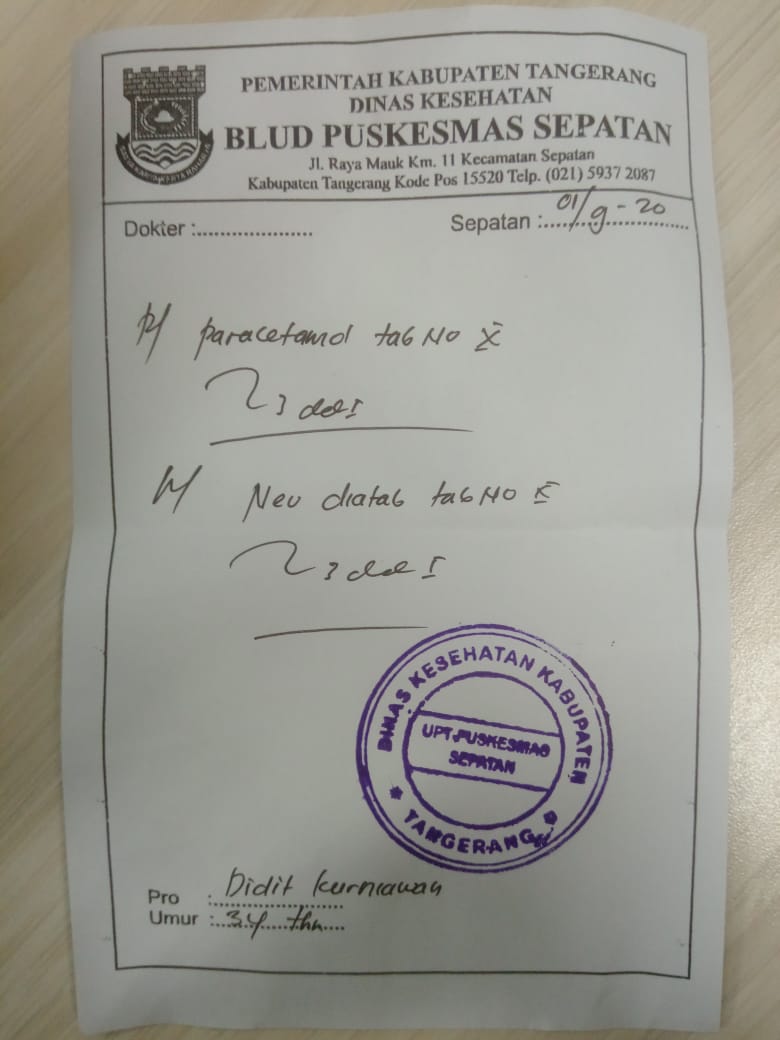 PEMERINTAH KABUPATEN TANGERANG
DINAS KESEHATAN
BLUD PUSKESMAS SEPATAN
Jl. Raya Mauk Km. 11 Kecamatan Sepatan
Kabupaten Tangerang Kode Pos 15520 Telp. (021) 5937 2087
Dokter :.....................
Sepatan : 01/9-20
R/ paracetamol tab No X
3 dd I
R/ Neo diatab tab No X
3 dd I
DINAS KESEHATAN KABUPATEN
UPT.PUSKESMAS
SEPATAN
* TANGERANG *
Pro : Didit Kurniawan
Umur : 34 thn